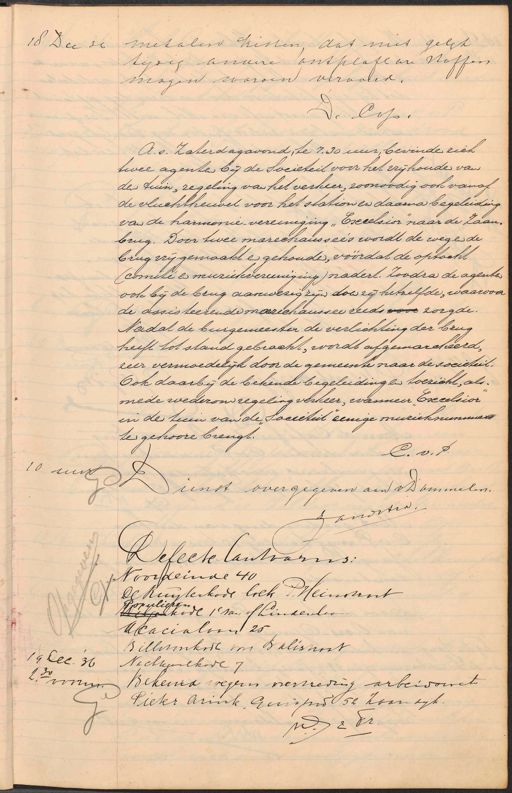 18 Dec 36 metalen kisten, dat niet gelijk
tijdig andere ontplofbare stoffen
mogen worden vervoerd.
De Cvp.
A.s. Zaterdagavond, te 7.30 uur, bevinden zich
twee agenten bij de Societeit voor het vrijhouden van
de tuin, regeling van het verkeer, zoonoodig ook vanaf
de vluchtheuvel voor het station en daarna begeleiding
van de harmonie vereeniging "Excelsior" naar de Zaan-
brug. Door twee marechaussee's wordt de weg en de
brug vrijgemaakt en gehouden, vóórdat de optocht
(comité en muziekvereeniging) nadert. Zoodra de agenten
ook bij de brug aanwezig zijn, doen zij hetzelfde, waarvoor
de assisteerende marechaussee reeds zorgde.
Nadat de burgemeester de verlichting der brug
heeft tot stand gebracht, wordt afgemarcheerd,
zeer vermoedelijk door de gemeente naar de societeit.
Ook daarbij de bekende begeleiding en toezicht, als-
mede wederom regeling verkeer, wanneer Excelsior
in de tuin van de "Societeit" eenige muzieknummers
te gehoore brengt.
C. v. P
10 uur Dienst overgegeven aan v Dommelen.
Defecte lantaarns:
Noordeinde 40
de Ruyterkade hoek P. Heinstraat
Acacialaan 25
19 Dec. '36 Nachtegaalkade 7
Bekeurd wegens overtreding arbeidswet